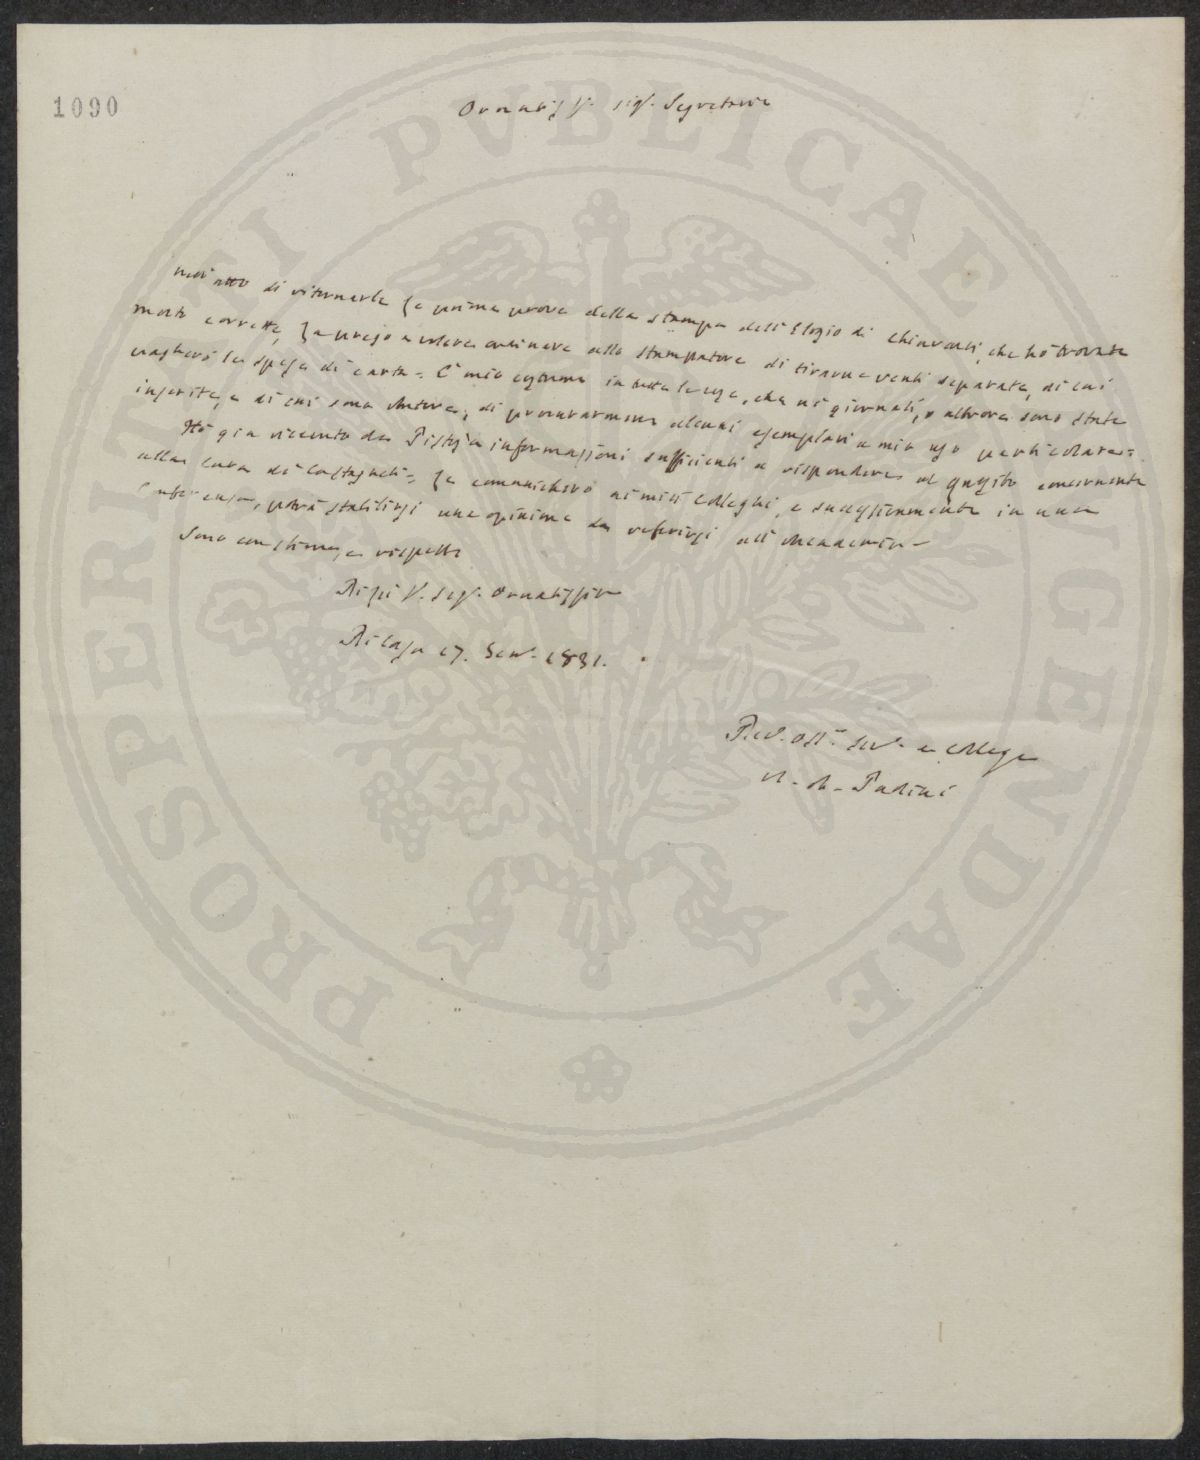 1090
Ornatiss. Sig. Segretario
Nell'atto di ritornarle la prima prova della stampa dell'Elogio di Chiarenti, che hò trovata
molto corretta, la prego a volere ordinare allo stampatore di tirarne venti separate, di cui
pagherò la spesa di carta = È mio costume in tutte le cose, che ni giornali, o altrove sono state
inserite, e di cui sono Autore, di procurarmene alcuni esemplari a mio uso particolare =
Hò già ricevuto da Pistoja informazioni sufficienti a rispondere al quesito concernente
alla cura di Castagneti = Le comunicherò ai miei Colleghi, e successivamente in una
Conferenza, potrà stabilirsi una opinione da referirsi all'Accademia =
Sono con stima, e rispetto
Di Lei Sig. Ornatissimo
Di Casa 17. Gen. 1831.
Dev. Obb. Serv. e Collega
Tadini
PROSPERITATI PVBLICAE AVGENDAE